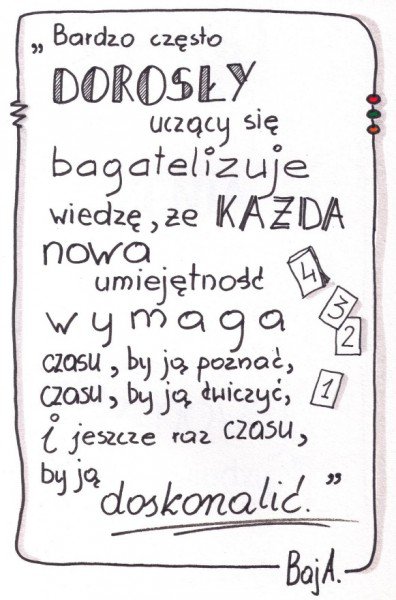 „Bardzo często
DOROSŁY
uczący się
bagatelizuje
wiedzę, że KAŻDA
nowa
umiejętność
4
wymaga
3
2
czasu, by ją poznać,
czasu, by ją ćwiczyć,
1
i jeszcze raz czasu,
by ją
doskonalić.”
BajA.